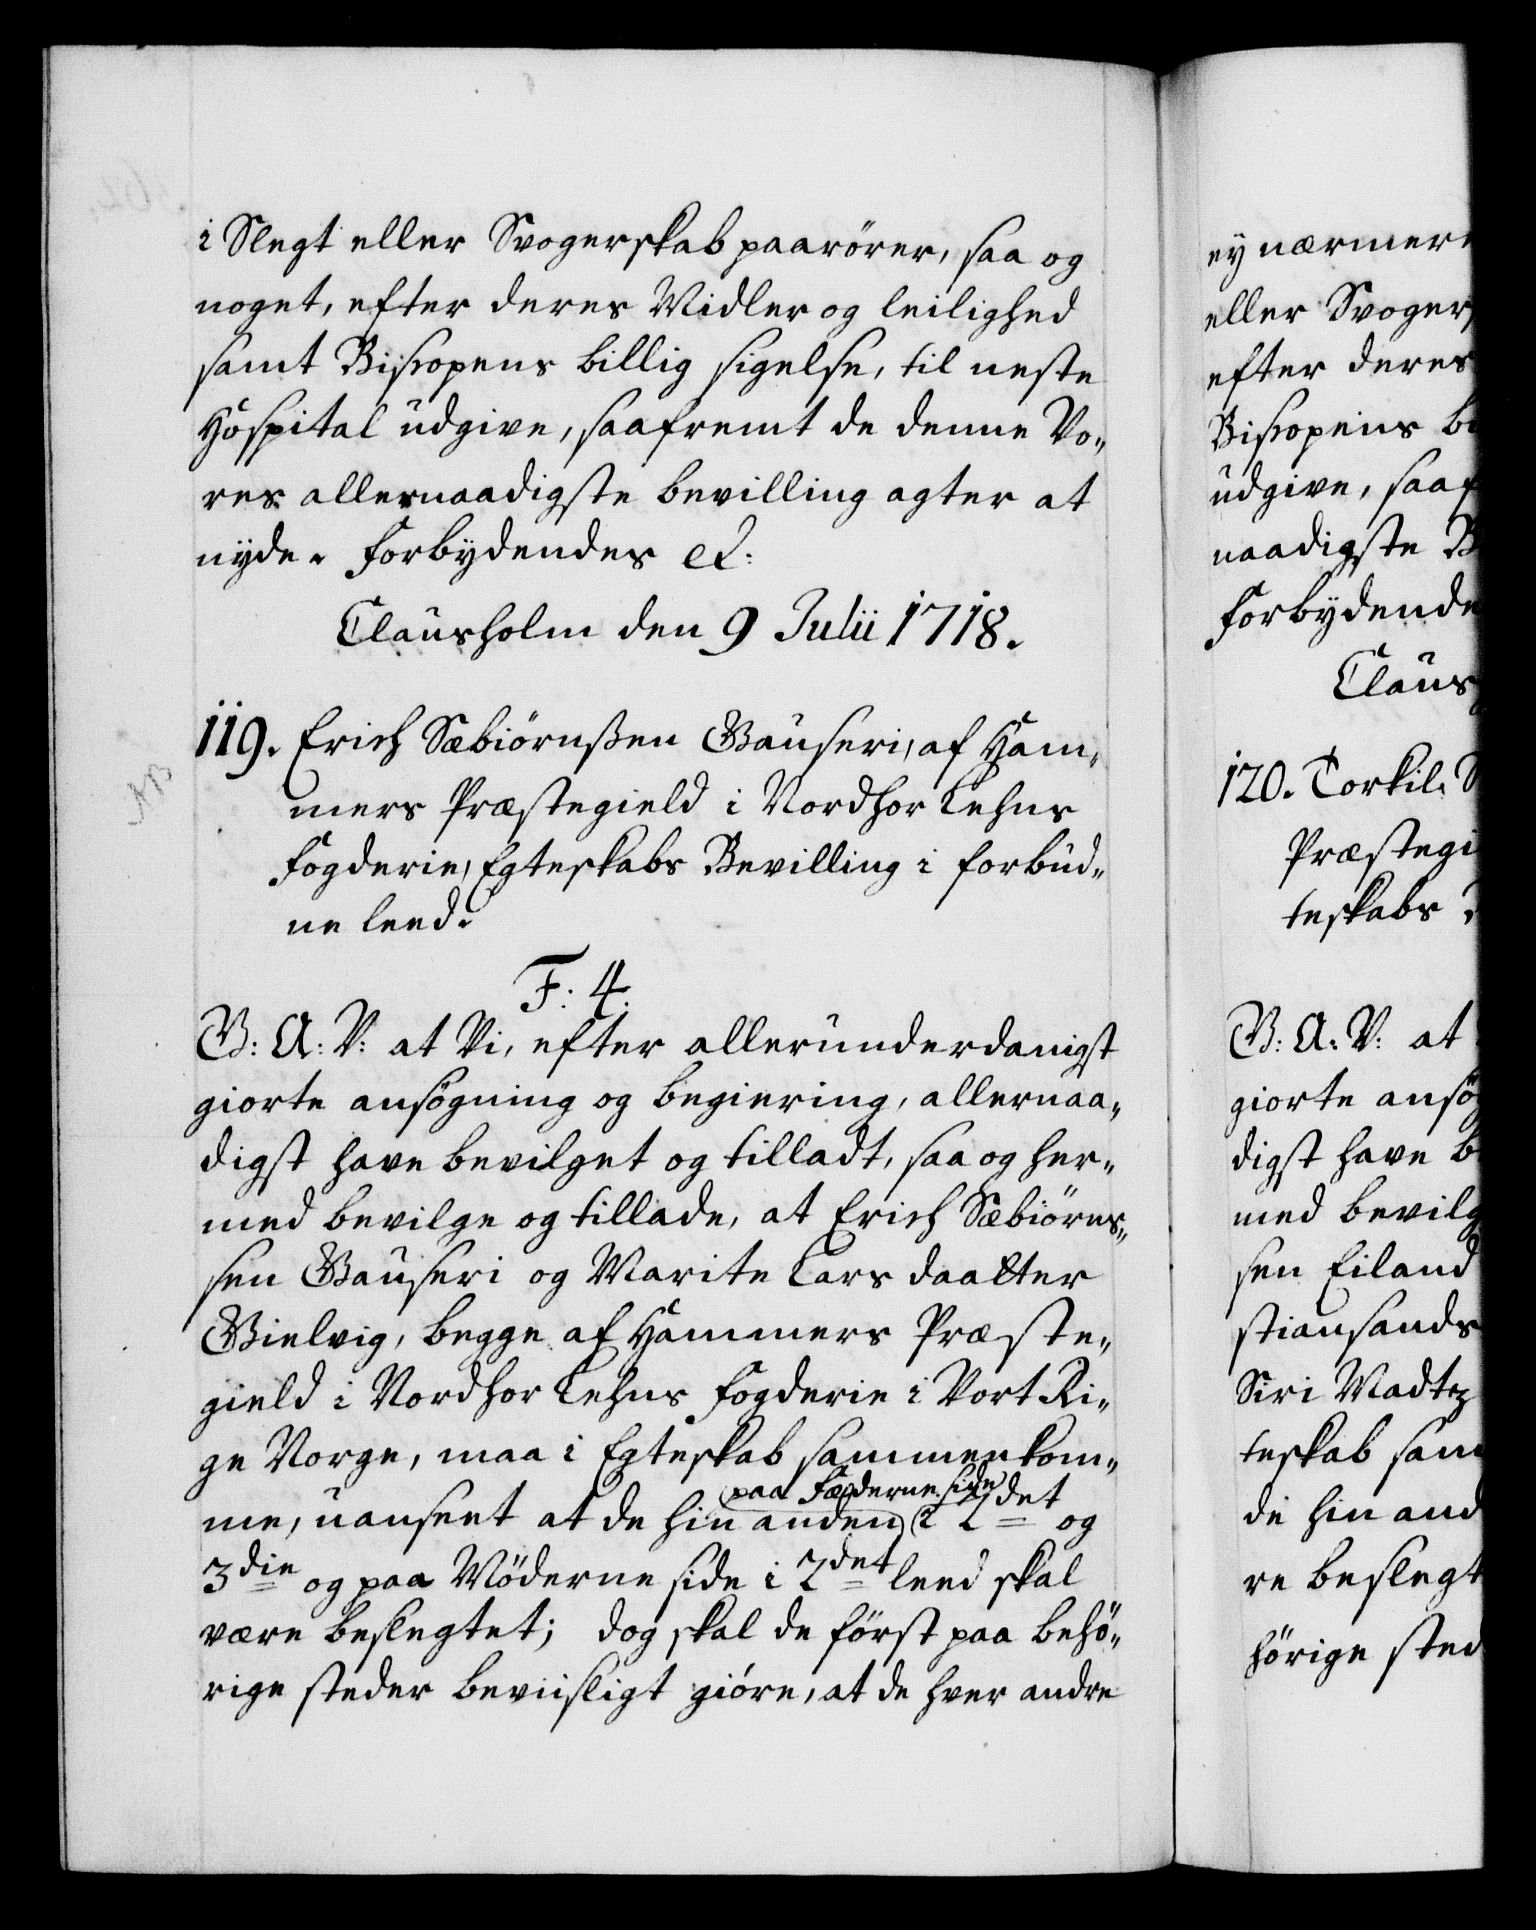 i Slegt eller Svogerskab paarörer, saa og
noget, efter deres Midler og leilighed
samt Bispens billig sigelse, til neste
Hospital udgive, saafremt de denne Vo„
res allernaadigste bevilling agter at
nyde. Forbydendes etc:
Clausholm den 9 Julii 1718.
119. Erich Sæbiörnßen Gauseri, af Ham„
mers Præstegield i Nordhor Lehns
Fogderie, Egteskabs Bevilling i forbud„
ne leed.
F: 4.
G: A: V: at Vi, efter allerunderdanigst
giorte ansögning og begiering, allernaa„
digst have bevilget og tilladt, saa og her„
med bevilge og tillade, at Erich Sæbiörns„
sen Gauseri og Marite Lars daatter
Gielvig, begge af Hammers Præste„
gield i Nordhor Lehns Fogderie i Vort Ri„
ge Norge, maa i Egteskab sammenkom„
paa Fæderne side
me, uanseet at de hin anden i 2det og
3die og paa Möderne side i 2det leed skal
være beslegtet; dog skal de först paa behö„
rige steder beviisligt giöre, at de hver andre
ey nærmere
eller Svogers
efter deres
Bispens bi
udgive, saaf
naadigste B
Forbydende
Claus
120. Torkil S
Præstegi
teskabs
G: A: V: at
giorte ansög
digst have b
med bevilg
sen Eiland
stiansands
Siri Madtz
teskab sam
de hin and
re beslegt
hörige sted